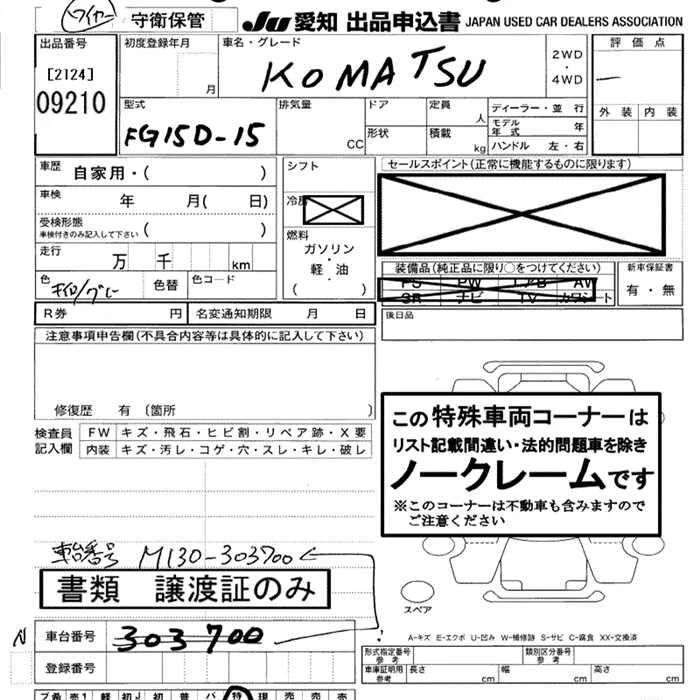 ワイヤー 守衛保管 JU 愛知 出品申込書 JAPAN USED CAR DEALERS ASSOCIATION
出品番号 初度登録年月 車名・グレード 評価点
[2124] 月 KOMATSU 2WD・4WD
09210 外装 内装
型式 排気量 ドア 定員 ディーラー・並行
FG15D-15 CC 形状 人 積載 kg モデル年式 年 ハンドル 左・右
車歴 自家用・( ) シフト セールスポイント(正常に機能するものに限ります)
車検 年 月( 日)
受検形態 車検付きのみ記入して下さい ( ) 燃料
走行 万 千 km ガソリン・軽・油 ( )
装備品(純正品に限り○をつけてください) 新車保証書
PS PW エアB AW 有・無
SR ナビ TV カワシート
色 キイロ/グレー 色替 色コード
R券 円 名変通知期限 月 日 後日品
注意事項申告欄(不具合内容等は具体的に記入して下さい)
修復歴 有 [箇所 ]
検査員記入欄 FW キズ・飛石・ヒビ割・リペア跡・X要
内装 キズ・汚レ・コゲ・穴・スレ・キレ・破レ
この特殊車両コーナーは
リスト記載間違い・法的問題車を除き
ノークレームです
※このコーナーは不動車も含みますので
ご注意ください
車台番号 M130-303700
書類 譲渡証のみ
スペア
N 車台番号 303700
A-キズ E-エクボ U-凹み W-補修跡 S-サビ C-腐食 XX-交換済
登録番号
形式指定番号 参考 類別区分番号 参考
車庫証明用 参考 長さ cm 幅 cm 高さ cm